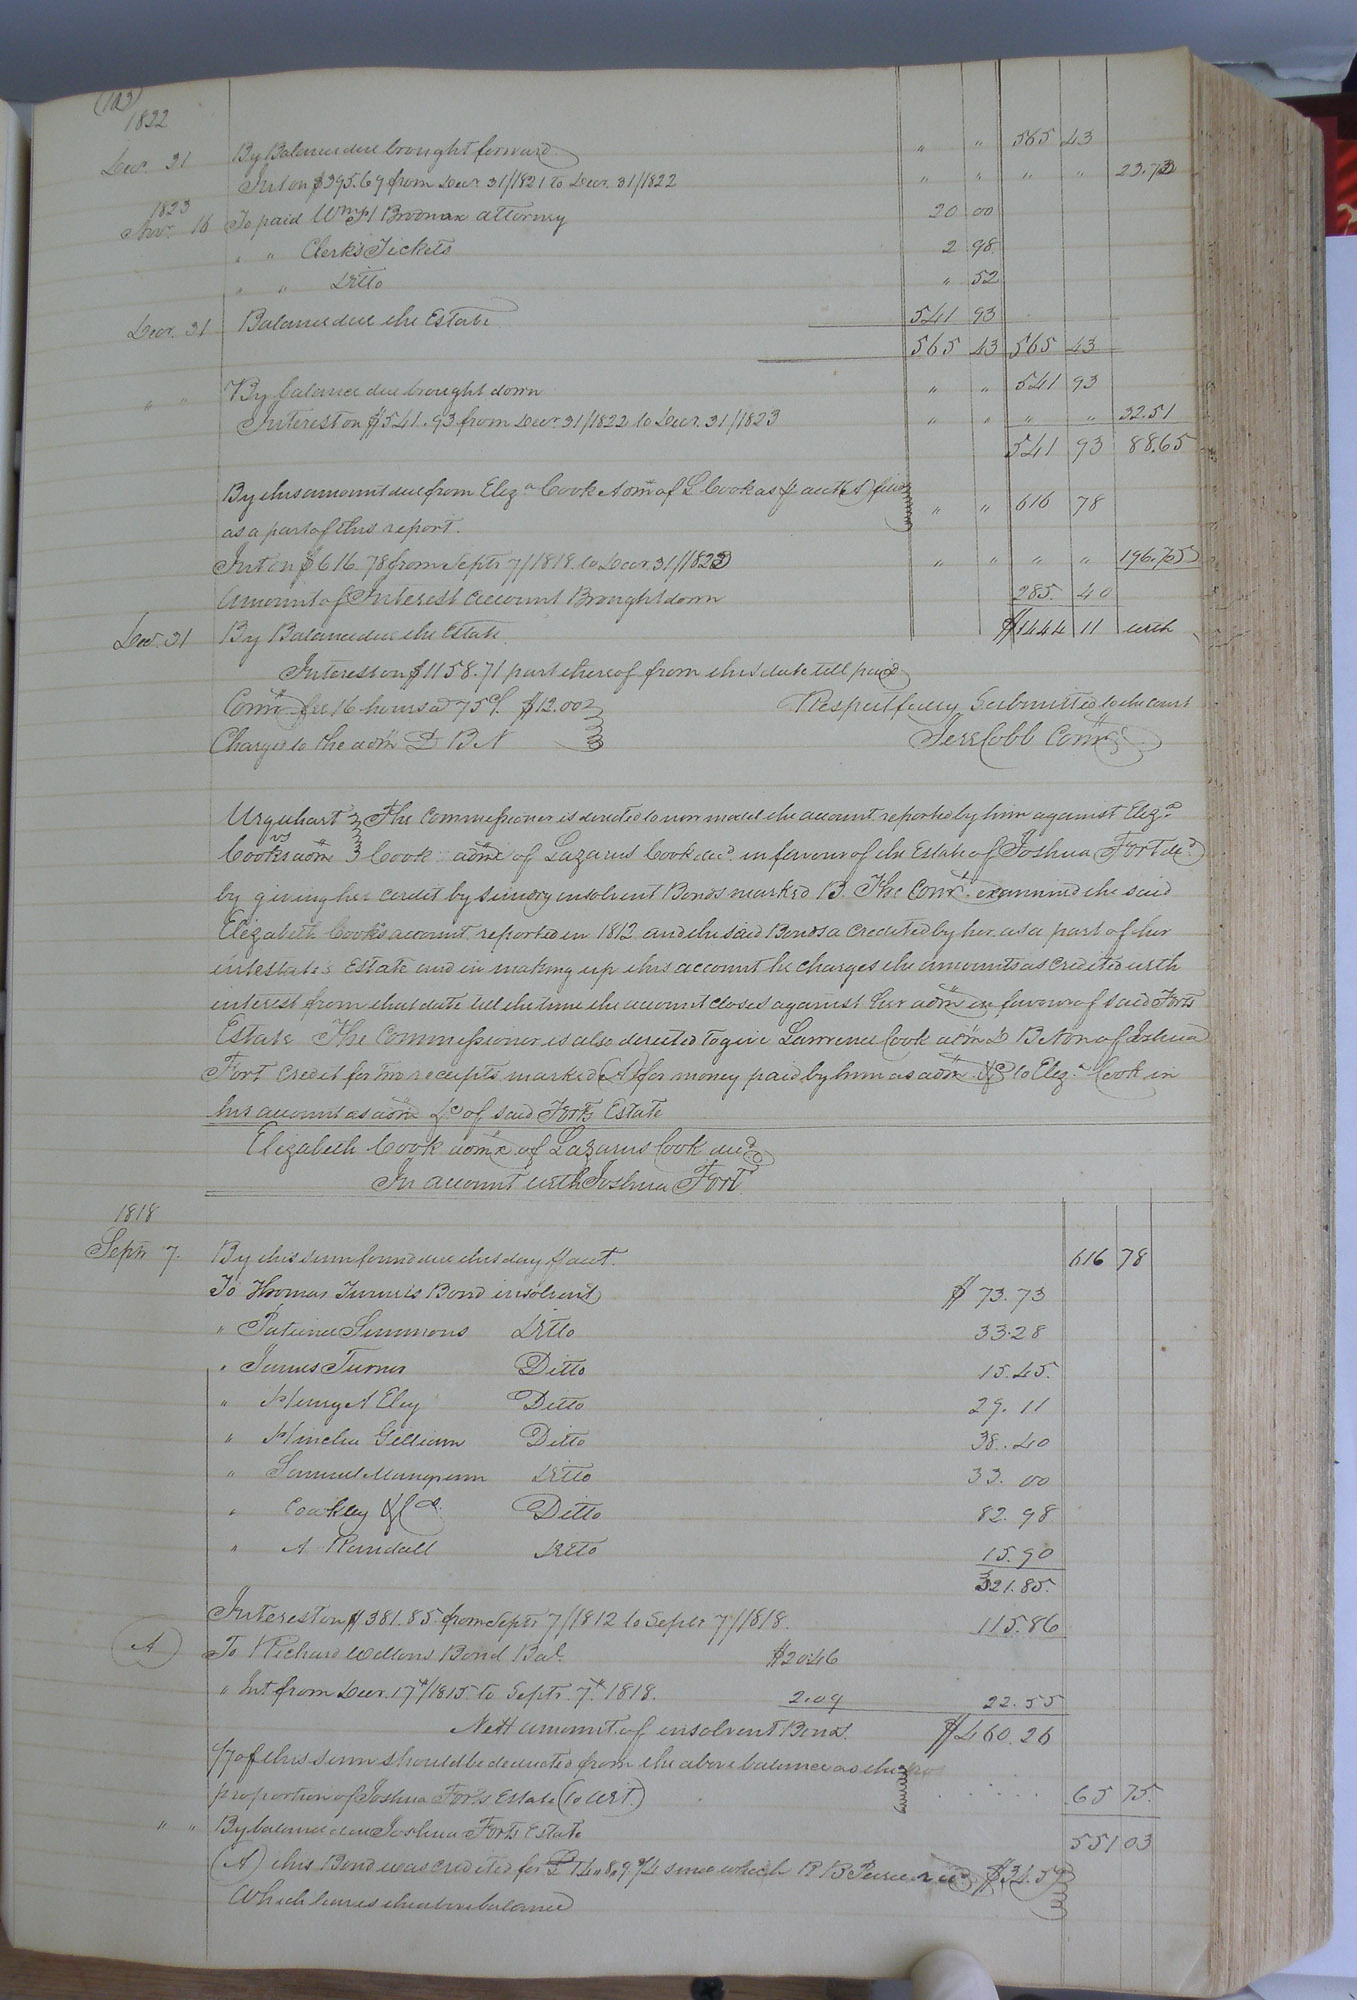 (103)
1822
Decr. 31 By Balance due brought forward " " 565 43
Int on $395.69 from Decr 31/1821 to Decr. 31/1822 " " " " 23.73
1823
Novr. 16 To paid Wm H Brodnax attorney 20 00
" " Clerks Tickets 2 98
" " Ditto " 52
Decr. 31 Balance due the Estate 541 93
565 43 565 43
" " By balance due brought down " " 541 93
Interest on $541.93 from Decr 31/1822 to Decr. 31/1823 " " " " 32.51
541 93 88.65
By this amount due from Eliza Cook Admx of L Cook as p acct (A) filed
as a part of this report. " " 616 78
Int on $616.78 from Septr 7/1818 to Decr. 31/1823 " " " " 196.75
Amount of Interest account Brought down 285. 40
Decr. 31 By Balance due the Estate $1444 11 with
Interest on $1158.71 part thereof from this date till paid
Comr fee 16 hours @ 75 cts. $12.00 Respectfully Submitted to the court
Charged to the adm D B N Jere Cobb Comr
Urquhart The Commissioner is directed to new model the account reported by him against Eliza
vs
Cooks adm Cook admx of Lazarus Cook decd. in favour of the Estate of Joshua Fort decd.
by giving her credit by sundry insolvent Bonds marked B. The Comr. examined the said
Elizabeth Cooks account reported in 1812 and the said Bonds a credited by her as a part of her
intestate's Estate and in making up this account he charges the amounts as credited with
interest from that date till the time the account closed against her adm in favour of said Forts
Estate The Commissioner is also directed to give Lawrence Cook adm D B Non of Joshua
Fort credit for two receipts marked (A) for money paid by him as adm &c to Eliza Cook in
his account as adm &c of said Forts Estate
Elizabeth Cook admx of Lazarus Cook decd
In account with Joshua Fort
1818
Septr 7. By this sum found due this day p acct. 616 78
To Thomas Turners Bond insolvent $ 73.73
" Simmons Ditto 33.28
" James Turner Ditto 15.45.
" Henry A Eley Ditto 29.11
" Hinchia Gilliam Ditto 38.40
" Samuel Mangum Ditto 33.00
" Coakley & Co. Ditto 82.98
" A Randall Ditto 15.90
321.85.
Interest on $381.85 from Septr 7/1812 to Septr 7/1818. 115.86
(A) To Richard Weltons Bond Bal. $20.46
" Int from Decr. 17th/1815 to Septr. 7th 1818. 2.09 22.55
Nett amount of insolvent Bonds. $460.26
1/7 of this sum should be deducted from the above balance as the
proportion of Joshua Forts Estate (to wit.) 65 75.
" " By balance due Joshua Forts Estate 551 03
(A) this Bond was credited for £14.8.9¾ since which R B Pierce recd $34.59
Which leaves the above balance